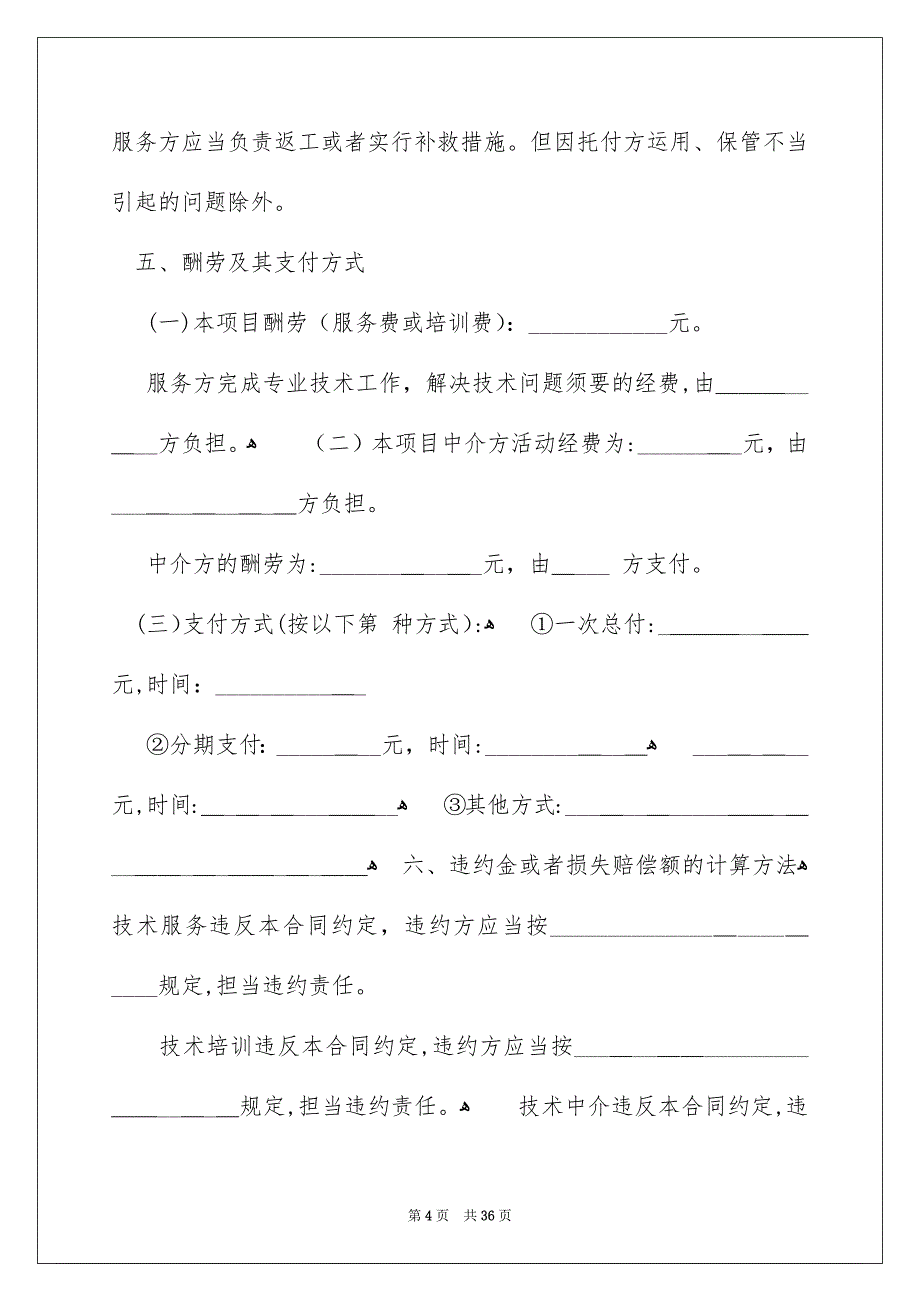 服务方应当负责返工或者实行补救措施。但因托付方运用、保管不当
引起的问题除外。
五、酬劳及其支付方式
(一)本项目酬劳（服务费或培训费）：____________元。
服务方完成专业技术工作，解决技术问题须要的经费,由________
____方负担。ﻫ （二）本项目中介方活动经费为:_________元，由
________________方负担。
中介方的酬劳为:______________元，由_____ 方支付。
(三)支付方式(按以下第 种方式):ﻫ ①一次总付:_____________
元,时间：_____________
②分期支付：_________元，时间:______________ﻫ __________
元,时间:_________________ﻫ ③其他方式:_____________________
______________________ﻫ 六、违约金或者损失赔偿额的计算方法ﻫ
技术服务违反本合同约定，违约方应当按______________________
____规定,担当违约责任。
技术培训违反本合同约定,违约方应当按____________________
___________规定,担当违约责任。ﻫ 技术中介违反本合同约定,违
第 4 页 共 36 页